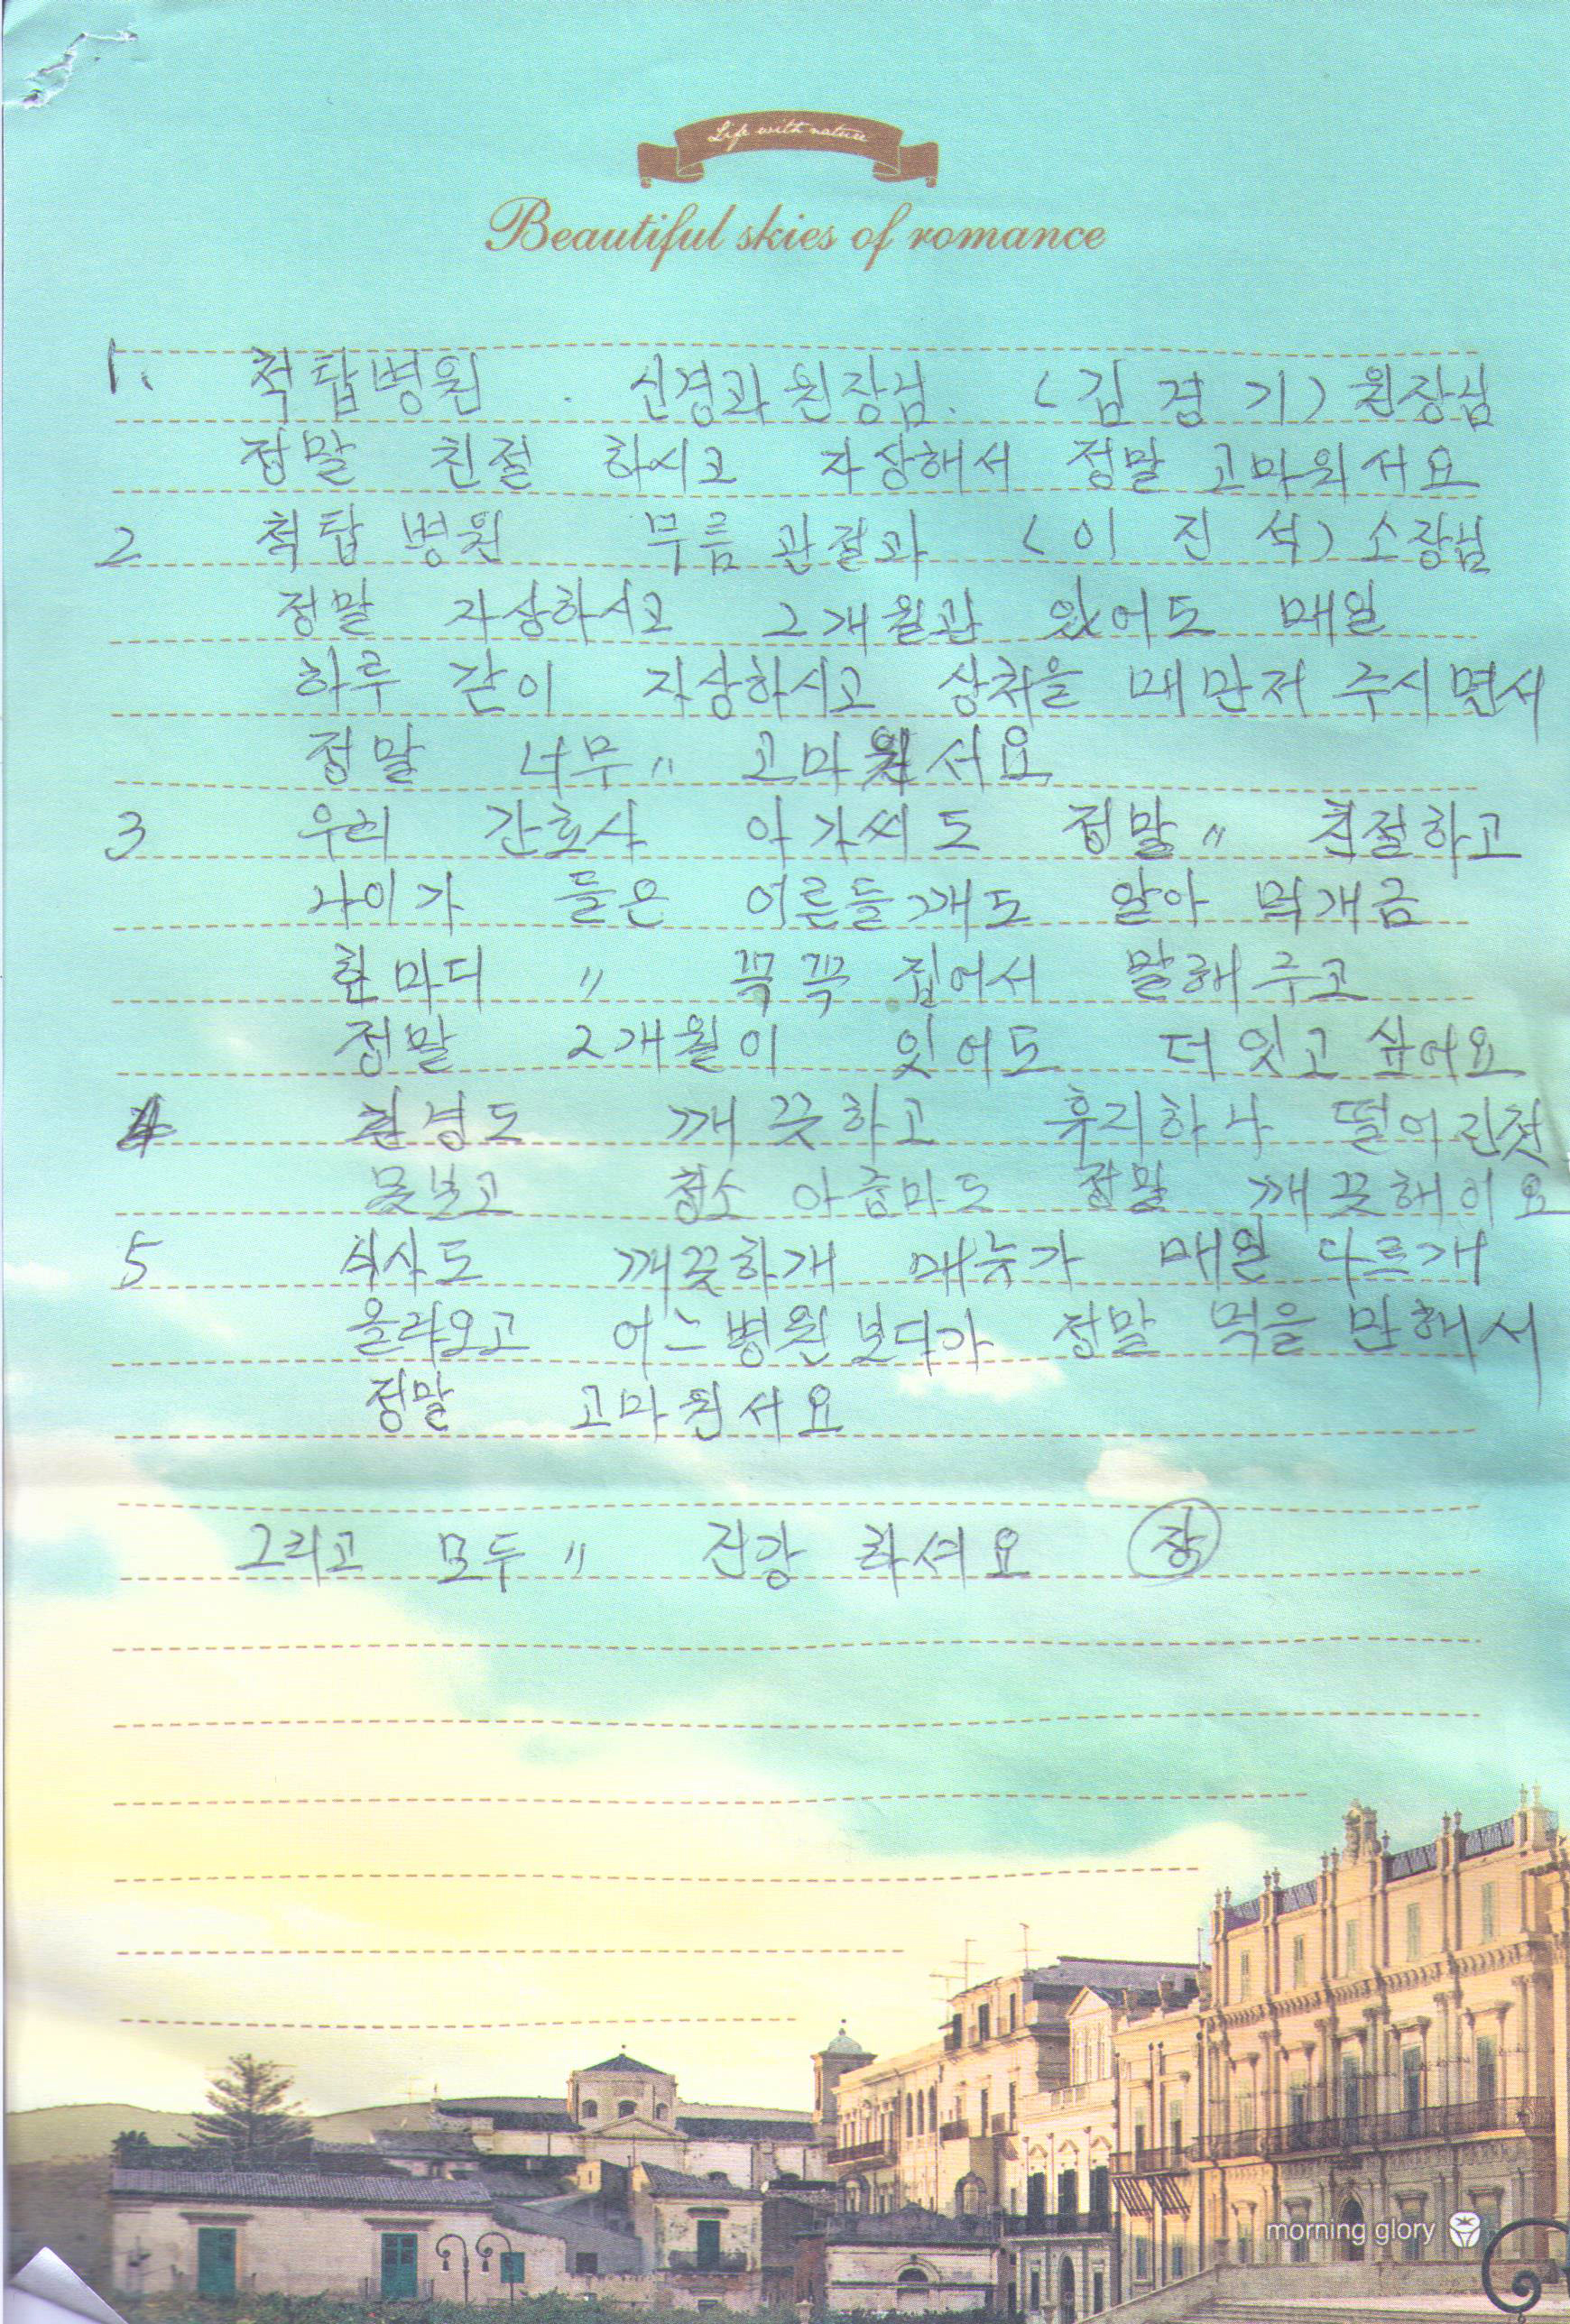 Life with nature
Beautiful skies of romance
1. 척탑병원 . 신경과 원장님. (김 경 기) 원장님
정말 친절 하시고 자상해서 정말 고마워서요
2 척탑 병원 무릎 관절과 (이 진 석) 소장님
정말 자상하시고 2개월관 있어도 매일
하루 같이 자상하시고 상처을 매만저 주시면서
정말 너무〃 고마워서요
3 우리 간호사 아가씨도 정말〃 친절하고
나이가 들은 어른들깨도 알아 먹개금
한마디 〃 꼭꼭 집어서 말해 주고
정말 2개월이 있어도 더 잇고 싶어요
4 환경도 깨끗하고 휴지하나 떨어진것
못보고 청소 아줌마도 정말 깨끗해이요
5 식사도 깨끗하개 매뉴가 매일 다르개
올라오고 어느병원 보다가 정말 먹을 만해서
정말 고마원서요
그리고 모두〃 건강 하셔요 장
morning glory